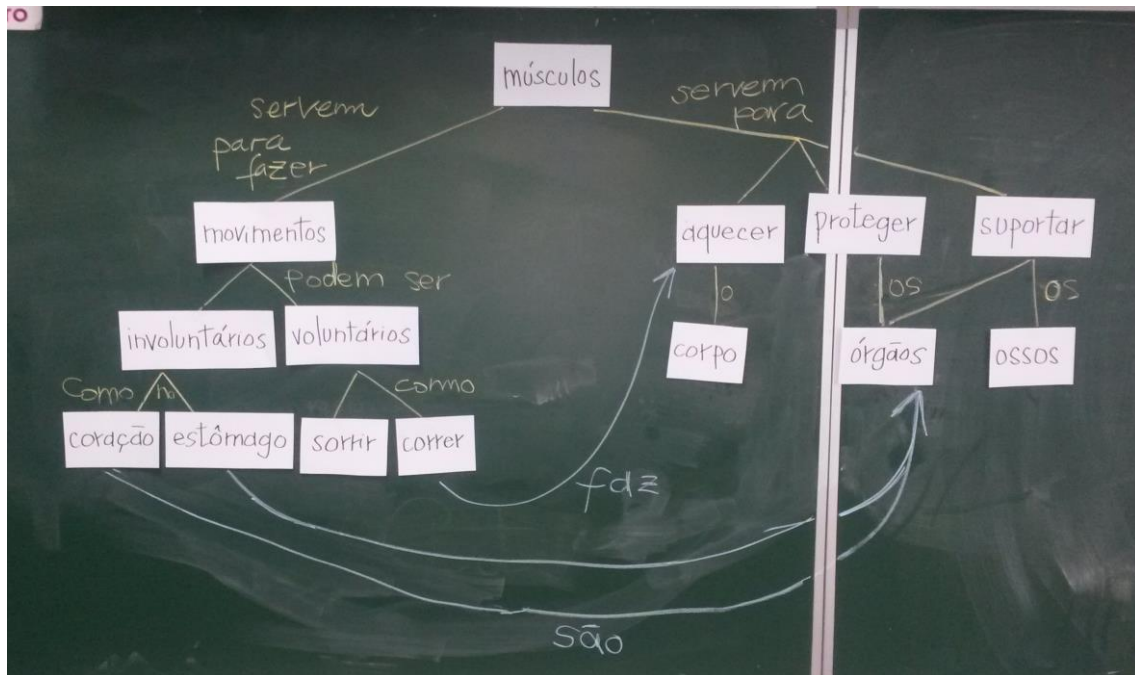 TO
músculos
servem
para
fazer
servem
para
movimentos
aquecer
proteger
suportar
podem ser
o
os
os
involuntários
voluntários
corpo
órgãos
ossos
como no
como
coração
estômago
sorrir
correr
faz
são